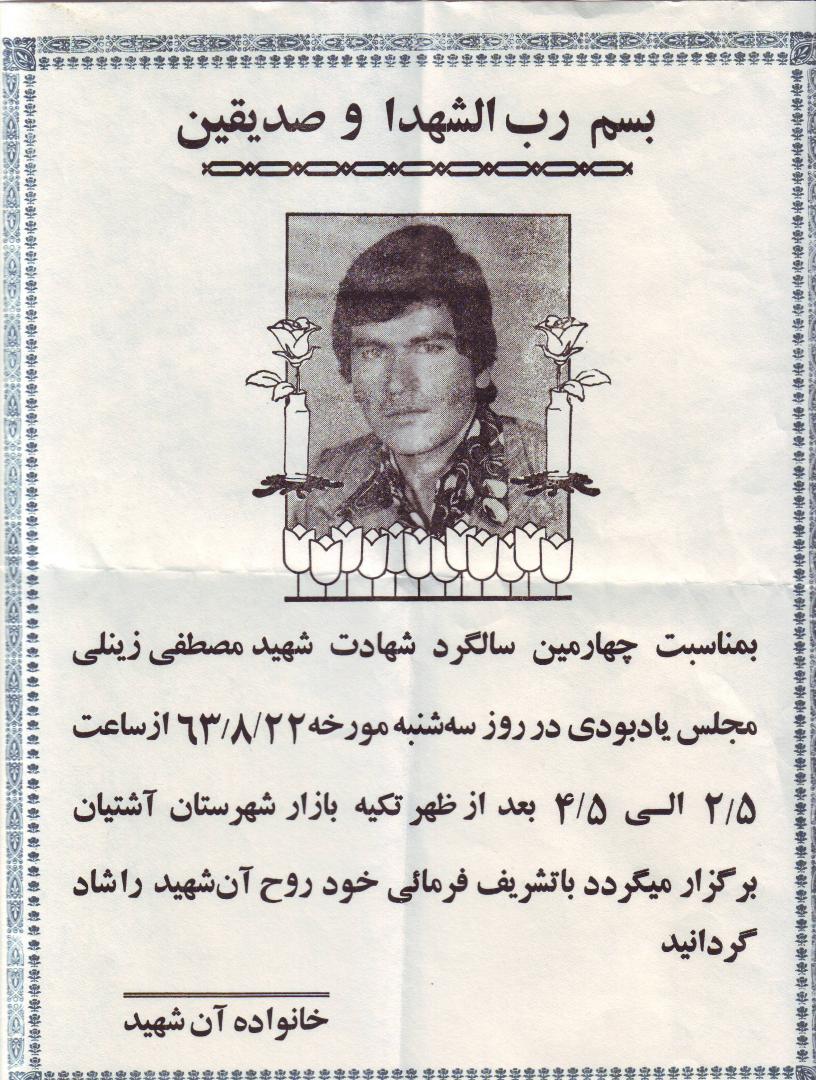 بسم رب الشهدا و صدیقین
بمناسبت چهارمین سالگرد شهادت شهید مصطفی زینلی
مجلس یادبودی در روز سه‌شنبه مورخه ۶۳/۸/۲۲ از ساعت
۲/۵ الی ۴/۵ بعد از ظهر تکیه بازار شهرستان آشتیان
برگزار میگردد با تشریف فرمائی خود روح آن شهید را شاد
گردانید
خانواده آن شهید